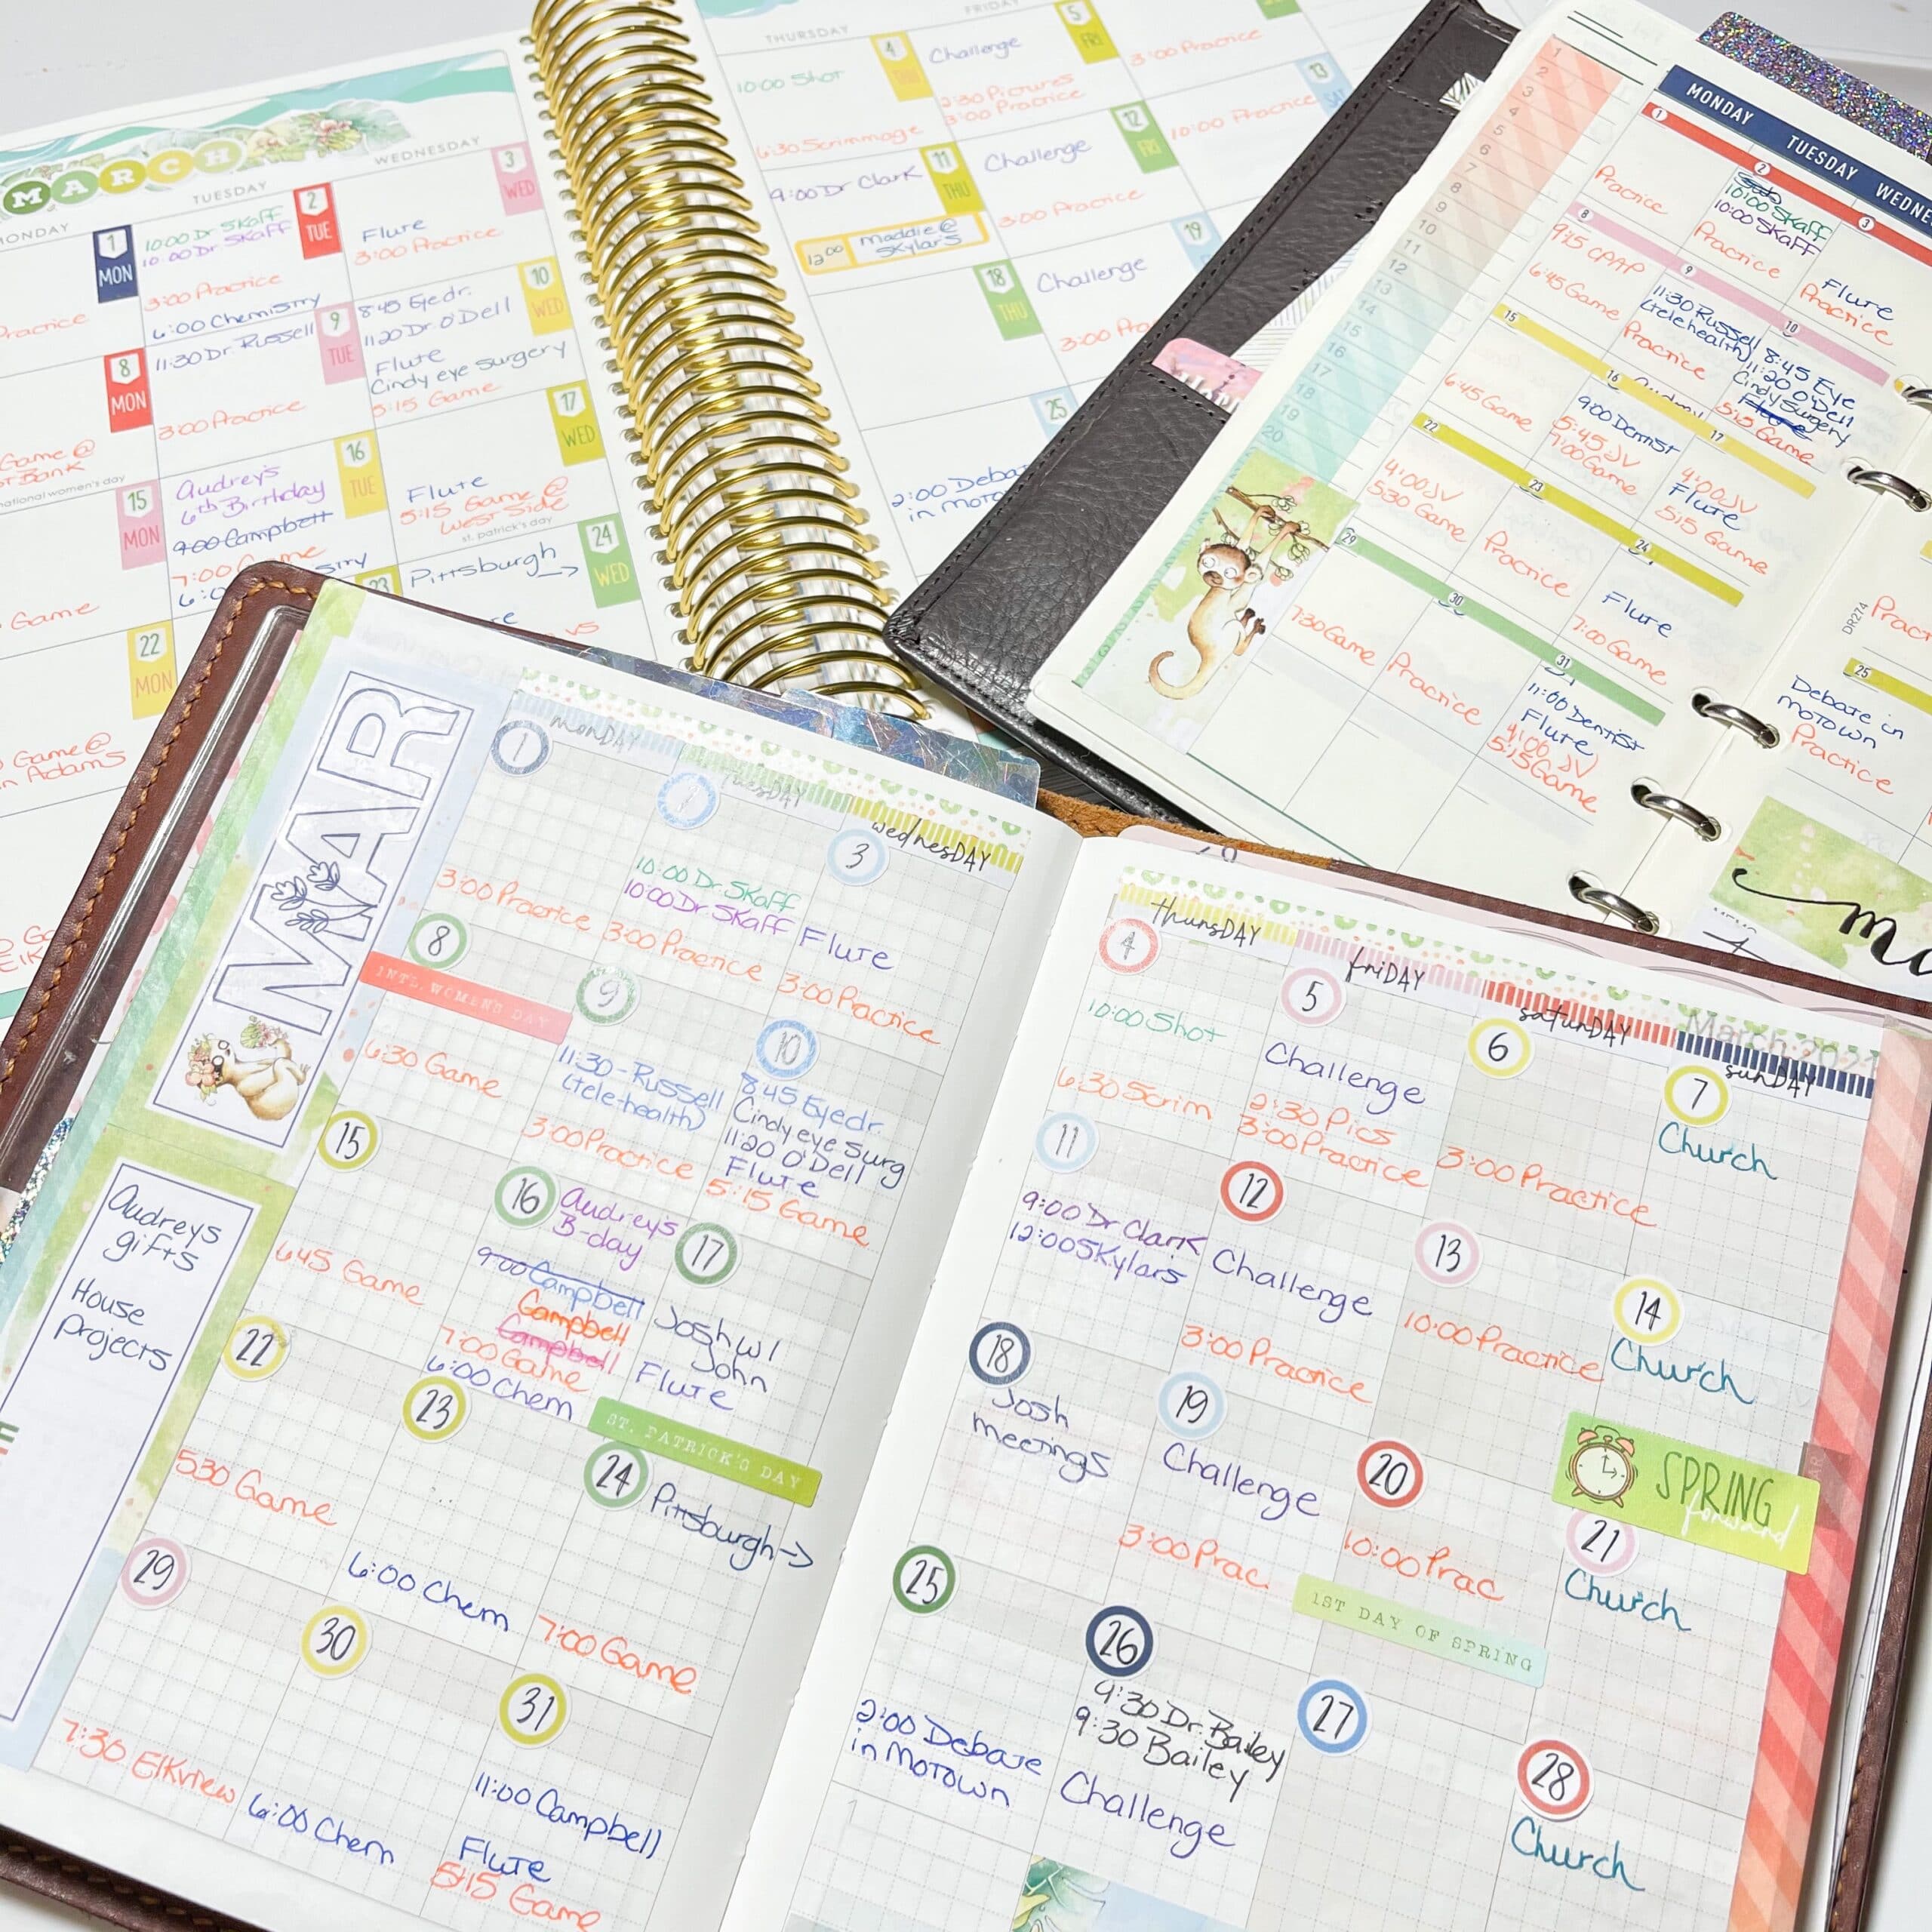 MARCH
MONDAY
TUESDAY
WEDNESDAY
1
MON
10:00 Dr Skaff
10:00 Dr Skaff
2
TUE
3
WED
Flute
3:00 Practice
Practice
3:00 Practice
6:00 Chemistry
8
MON
11:30 Dr Russell
9
TUE
8:45 Eye dr.
11:20 Dr O'Dell
Flute
Cindy eye surgery
5:15 Game
10
WED
3:00 Practice
Game @
national women's day
15
MON
Audrey's
6th Birthday
9:00 Campbell
7:00 Game
16
TUE
Flute
5:15 Game @
West Side
st. patrick's day
17
WED
Game
23
Pittsburgh
→
24
WED
22
MON
Game @
Adams
THURSDAY
FRIDAY
10:00 Shot
4
Challenge
5
FRI
3:00 Practice
2:30 Pictures
3:00 Practice
6:30 Scrimmage
9:00 Dr Clark
11
THU
Challenge
12
FRI
10:00 Practice
13
12:00
Maddie @
Skylar's
3:00 Practice
18
THU
Challenge
19
25
2:00 Deba
in moto
1
2
3
4
5
6
7
8
9
10
11
12
13
14
15
16
17
18
19
20
MONDAY
TUESDAY
WEDNE
1
Practice
2
10:00 Skaff
10:00 Skaff
Practice
3
Flute
Practice
8
9:15 CPAP
6:45 Game
9
11:30 Russell
(telehealth)
Practice
10
8:45 Eye
11:20 O'Dell
Cindy Surgery
Flute
5:15 Game
15
6:45 Game
16
9:00 Dentist
5:45 JV
7:00 Game
17
4:00 JV
Flute
5:15 Game
22
4:00 JV
5:30 Game
23
Practice
24
Flute
7:00 Game
29
7:30 Game
30
Practice
31
11:00 Dentist
Flute
4:00 JV
5:15 Game
DR274
25
Debate in
motown
Practice
MAR
Audreys
gifts
House
Projects
monDAY
tuesDAY
wednesDAY
1
3:00 Practice
2
10:00 Dr. Skaff
10:00 Dr Skaff
3:00 Practice
3
Flute
3:00 Practice
8
INTL WOMEN'S DAY
6:30 Game
9
11:30 - Russell
(tele-health)
3:00 Practice
10
8:45 Eye dr.
Cindy eye surg
11:20 O'Dell
Flute
5:15 Game
15
6:45 Game
16
Audrey's
B-day
9:00 Campbell
Campbell
Campbell
7:00 Game
6:00 Chem
17
Josh w/
John
Flute
ST. PATRICK'S DAY
22
5:30 Game
23
6:00 Chem
24
Pittsburgh →
7:00 Game
29
7:30 Elkview
30
6:00 Chem
31
11:00 Campbell
Flute
5:15 Game
thursDAY
friDAY
saturDAY
sunDAY
4
10:00 Shot
6:30 Scrim
5
Challenge
2:30 Pics
3:00 Practice
6
3:00 Practice
7
Church
11
9:00 Dr Clark
12:00 Skylars
12
Challenge
3:00 Practice
13
10:00 Practice
14
Church
SPRING
forward
18
Josh
meetings
19
Challenge
3:00 Prac.
20
10:00 Prac
1ST DAY OF SPRING
21
Church
25
2:00 Debate
in Motown
26
9:30 Dr. Bailey
9:30 Bailey
Challenge
27
28
Church